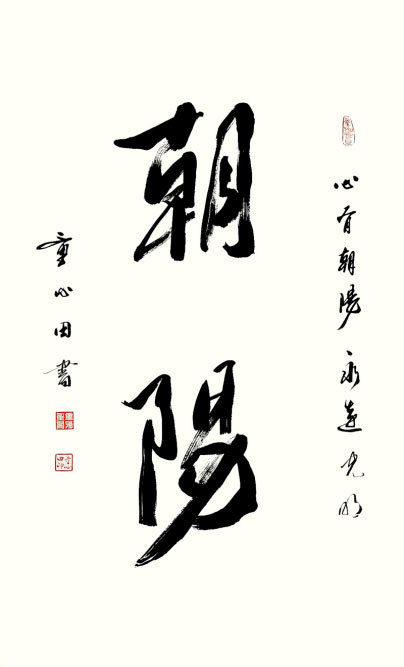 心有朝陽 永遠光明
朝陽
童心田書